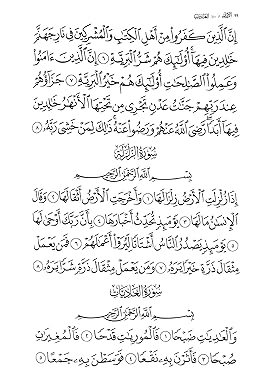 إِنَّ الَّذِينَ كَفَرُوا مِنْ أَهْلِ الْكِتَابِ وَالْمُشْرِكِينَ فِي نَارِ جَهَنَّمَ
خَالِدِينَ فِيهَا أُولَٰئِكَ هُمْ شَرُّ الْبَرِيَّةِ ٦ إِنَّ الَّذِينَ ءَامَنُوا
وَعَمِلُوا الصَّالِحَاتِ أُولَٰئِكَ هُمْ خَيْرُ الْبَرِيَّةِ ٧ جَزَاؤُهُمْ
عِنْدَ رَبِّهِمْ جَنَّاتُ عَدْنٍ تَجْرِي مِنْ تَحْتِهَا الْأَنْهَارُ خَالِدِينَ
فِيهَا أَبَدًا رَضِيَ اللَّهُ عَنْهُمْ وَرَضُوا عَنْهُ ذَٰلِكَ لِمَنْ خَشِيَ رَبَّهُ ٨
سُورَةُ الزَّلْزَلَةِ
بِسْمِ اللَّهِ الرَّحْمَٰنِ الرَّحِيمِ
إِذَا زُلْزِلَتِ الْأَرْضُ زِلْزَالَهَا ١ وَأَخْرَجَتِ الْأَرْضُ أَثْقَالَهَا ٢ وَقَالَ
الْإِنْسَانُ مَا لَهَا ٣ يَوْمَئِذٍ تُحَدِّثُ أَخْبَارَهَا ٤ بِأَنَّ رَبَّكَ أَوْحَىٰ لَهَا
٥ يَوْمَئِذٍ يَصْدُرُ النَّاسُ أَشْتَاتًا لِيُرَوْا أَعْمَالَهُمْ ٦ فَمَنْ يَعْمَلْ
مِثْقَالَ ذَرَّةٍ خَيْرًا يَرَهُ ٧ وَمَنْ يَعْمَلْ مِثْقَالَ ذَرَّةٍ شَرًّا يَرَهُ ٨
سُورَةُ الْعَادِيَاتِ
بِسْمِ اللَّهِ الرَّحْمَٰنِ الرَّحِيمِ
وَالْعَادِيَاتِ ضَبْحًا ١ فَالْمُورِيَاتِ قَدْحًا ٢ فَالْمُغِيرَاتِ
صُبْحًا ٣ فَأَثَرْنَ بِهِ نَقْعًا ٤ فَوَسَطْنَ بِهِ جَمْعًا ٥